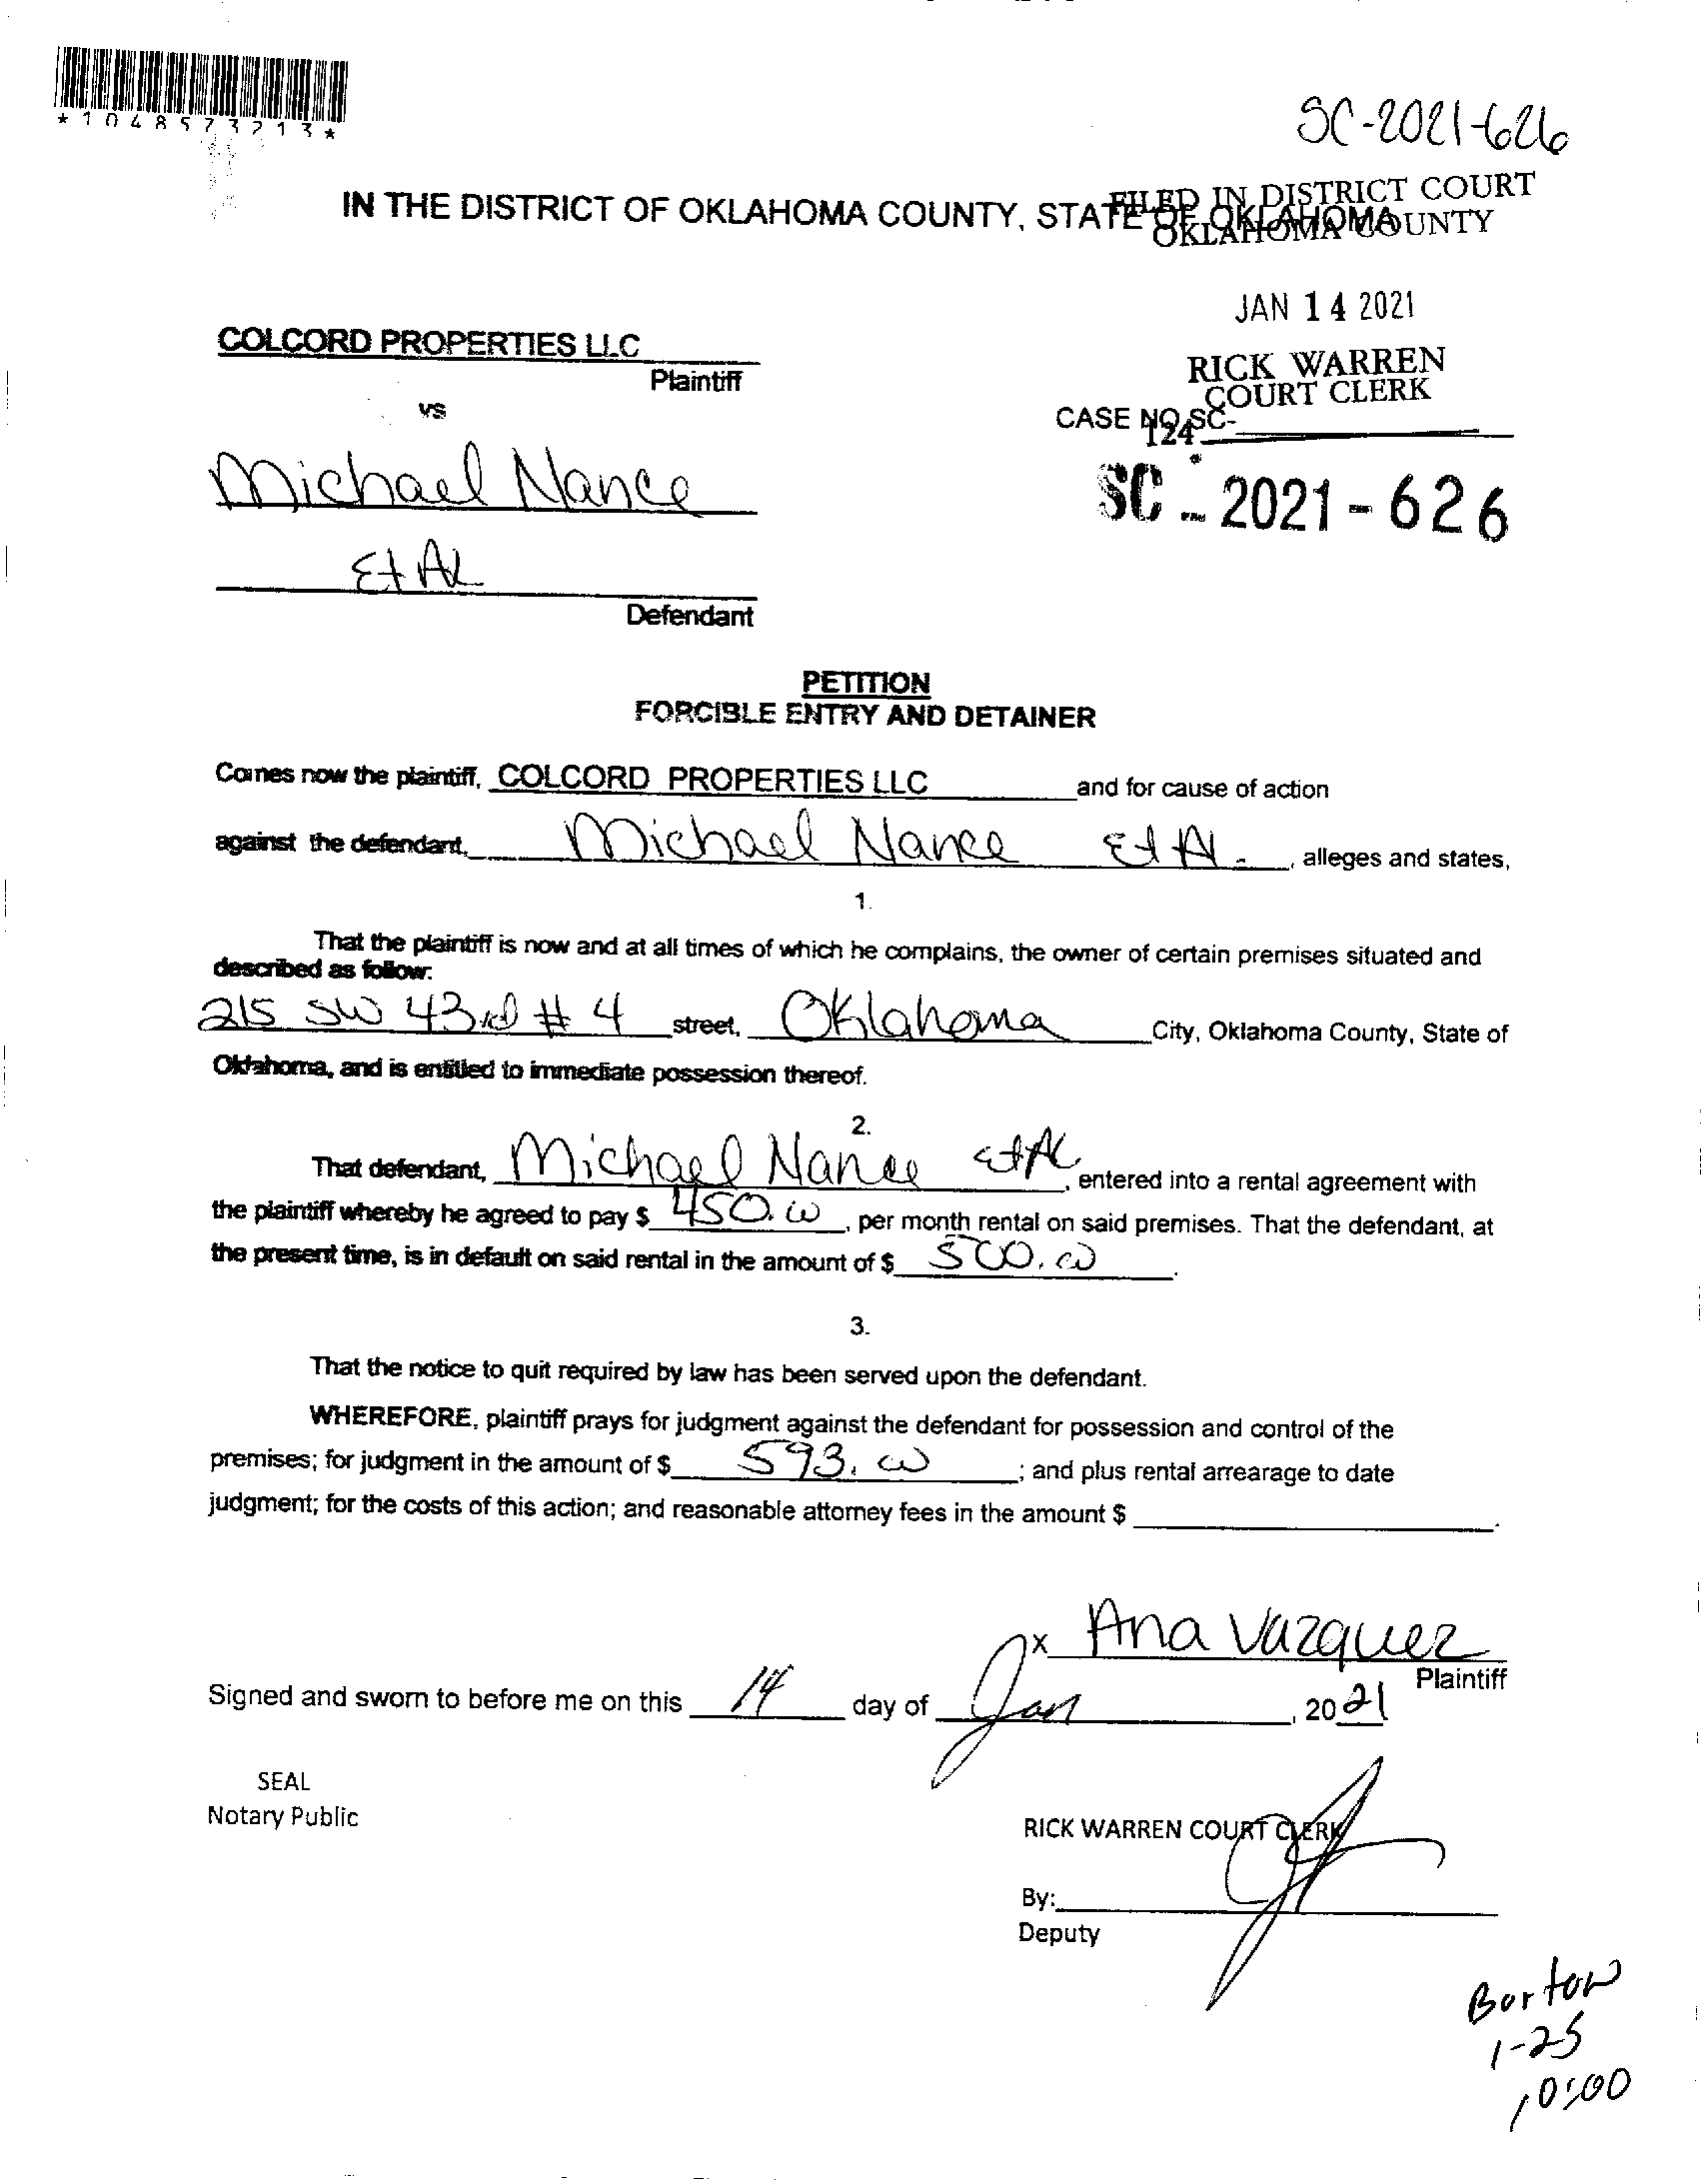 *1048573213*
SC-2021-626
IN THE DISTRICT OF OKLAHOMA COUNTY, STATE OF OKLAHOMA
FILED IN DISTRICT COURT
OKLAHOMA COUNTY
JAN 14 2021
COLCORD PROPERTIES LLC
Plaintiff
RICK WARREN
COURT CLERK
vs
CASE NO SC-
124
Michael Nance
SC - 2021-626
Et Al
Defendant
PETITION
FORCIBLE ENTRY AND DETAINER
Comes now the plaintiff, COLCORD PROPERTIES LLC and for cause of action
against the defendant, Michael Nance Et Al. , alleges and states,
1.
That the plaintiff is now and at all times of which he complains, the owner of certain premises situated and
described as follow:
215 SW 43rd # 4 street, Oklahoma City, Oklahoma County, State of
Oklahoma, and is entitled to immediate possession thereof.
2.
That defendant, Michael Nance Et Al , entered into a rental agreement with
the plaintiff whereby he agreed to pay $ 450.00 , per month rental on said premises. That the defendant, at
the present time, is in default on said rental in the amount of $ 500.00 .
3.
That the notice to quit required by law has been served upon the defendant.
WHEREFORE, plaintiff prays for judgment against the defendant for possession and control of the
premises; for judgment in the amount of $ 593.00 ; and plus rental arrearage to date
judgment; for the costs of this action; and reasonable attorney fees in the amount $ .
x Ana Vazquez
Plaintiff
Signed and sworn to before me on this 14 day of Jan , 2021
SEAL
Notary Public
RICK WARREN COURT CLERK
By:
Deputy
1-25
10:00